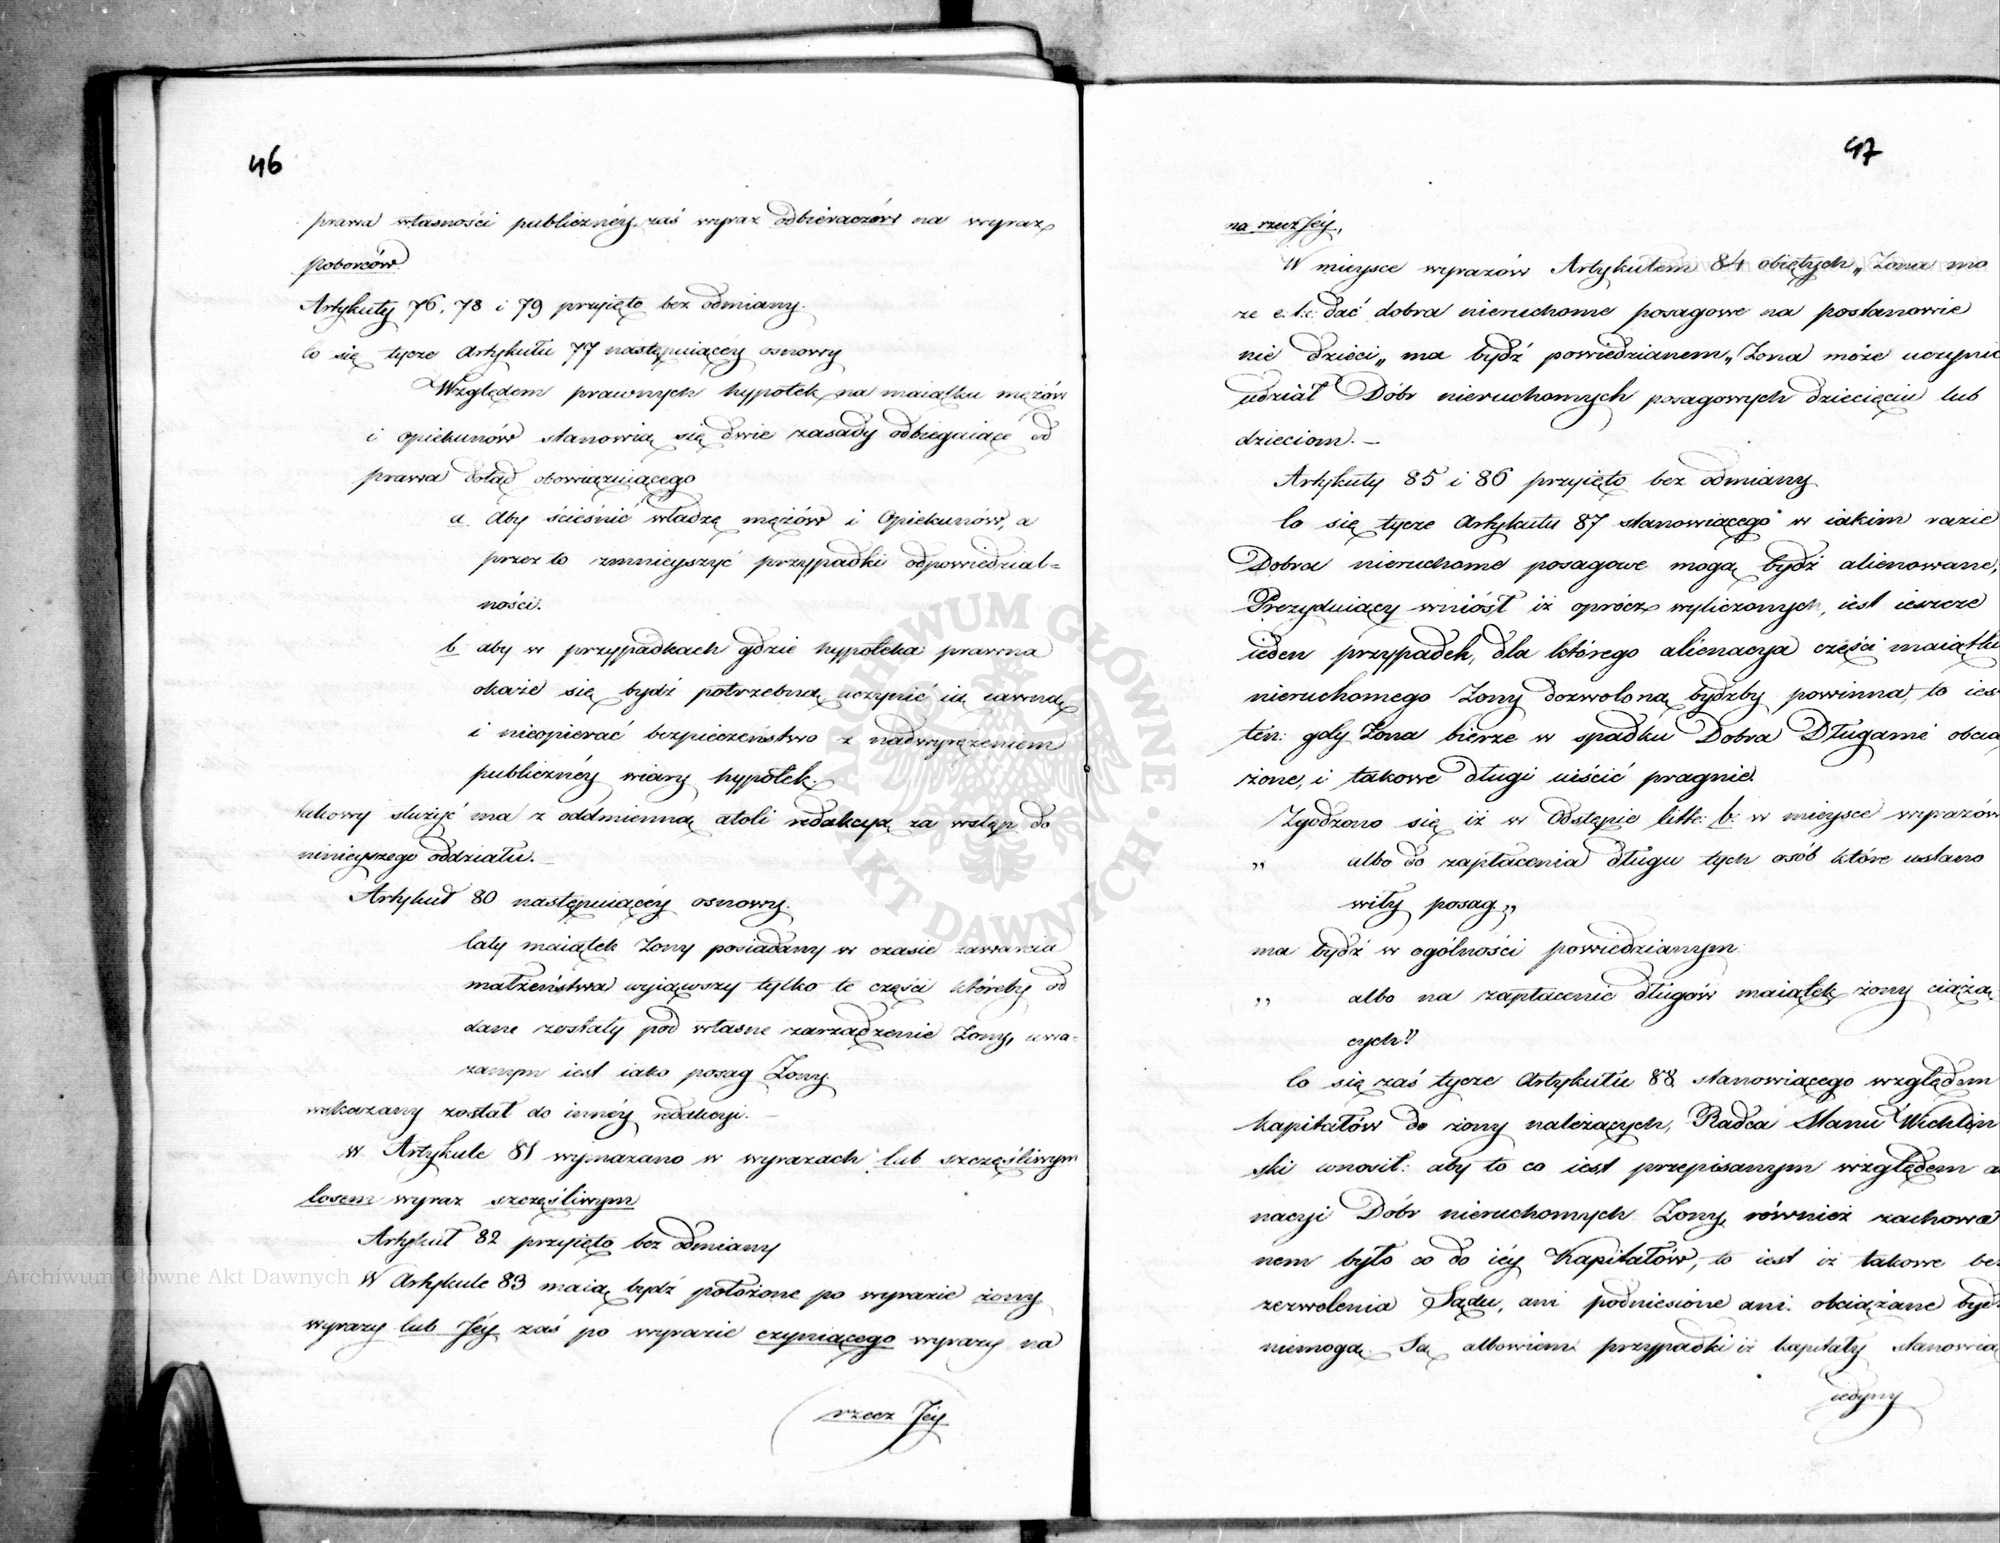 46
prawa własności publicznéy, zaś wyraz odbieraczów na wyraz
poborców.
Artykuły 76, 78 i 79 przyięto bez odmiany.
Co się tycze Artykułu 77 następuiącey osnowy
Względem prawnych hypotek na maiątku mężów
i opiekunów stanowią się dwie zasady odbiegaiące od
prawa dotąd obowiązuiącego
a. Aby ścieśnić władzę mężów i Opiekunów, a
przez to zmnieyszyć przypadki odpowiedzial=
ności.
b. aby w przypadkach gdzie hypoteka prawna
okaże się bydź potrzebną uczynić ią iawną
i nieopierać bezpieczeństwo z nadwyrężeniem
publicznéy wiary hypotek.
takowy służyć ma z oddmienną atoli redakcyą za wstęp do
ninieyszego oddziału. —
Artykuł 80 następuiącéy osnowy.
Cały maiątek Żony posiadany w czasie zawarcia
małżeństwa wyiąwszy tylko te części któreby od
dane zostały pod własne zarządzenie Żony, uwa=
żanym iest iako posag Żony.
wskazany został do innéy redakcyi. —
W Artykule 81 wymazano w wyrazach lub szczęśliwym
losem wyraz szczęśliwym
Artykuł 82 przyięto bez odmiany
W Artykule 83 maią bydź położone po wyrazie żony
wyrazy lub Jéy zaś po wyrazie czyniącego wyrazy na
rzecz Jéy
47
na rzecz Jéy.
W mieysce wyrazów Artykułem 84 obiętych „Żona mo
że e.t.c. dać dobra nieruchome posagowe na postanowie
nie dzieci„ ma bydź powiedzianem „Żona może uczynić
udział Dóbr nieruchomych posagowych dziecięciu lub
dzieciom. —
Artykuły 85 i 86 przyięto bez odmiany
Co się tycze Artykułu 87 stanowiącego w iakim razie
Dobra nieruchome posagowe mogą bydź alienowane,
Prezyduiący wniósł iż oprócz wyliczonych, iest ieszcze
ieden przypadek, dla którego alienacya części maiątku
nieruchomego Żony dozwoloną bydźby powinna, to iest
ten: gdy Żona bierze w spadku Dobra Długami obcią
żone, i takowe długi uiścić pragnie.
Zgodzono się iż w Odstępie litt: b: w mieysce wyrazów
„ albo do zapłacenia długu tych osób które ustano
wiły posag „
ma bydź w ogólności powiedzianym:
„ albo na zapłacenie długów maiątek żony ciążą
cych"
Co się zaś tycze Artykułu 88 stanowiącego względem
kapitałów do żony należących, Radca Stanu Wichliń
ski wnosił: aby to co iest przepisanym względem a
nacyi Dóbr nieruchomych Żony, również zachowa
nem było co do iéy Kapitałów, to iest iż takowe bez
zezwolenia Sądu, ani podniesione ani obciążane bydź
niemogą. Są albowiem przypadki iż kapitały stanowią
iedyny
ARCHIWUM GŁÓWNE AKT DAWNYCH
Archiwum Główne Akt Dawnych